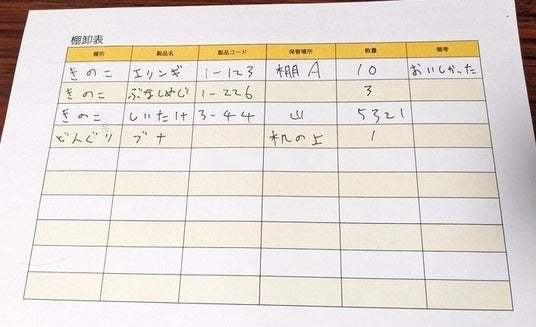 棚卸表
種別 製品名 製品コード 保管場所 数量 備考
きのこ エリンギ 1-123 棚A 10 おいしかった
きのこ ぶなしめじ 1-226 3
きのこ しいたけ 3-44 山 5321
どんぐり ブナ 机の上 1